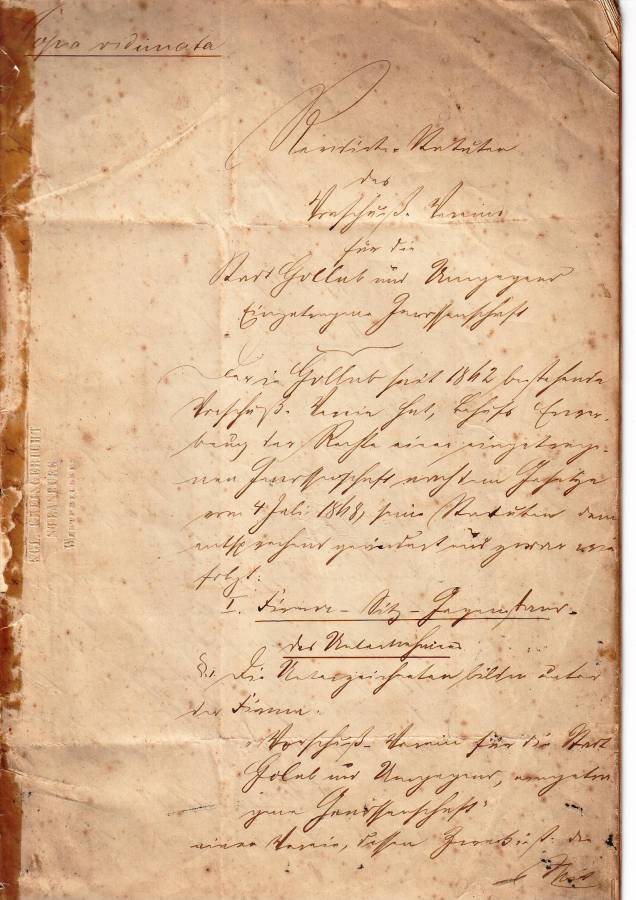 Copia vidimata
Revidirte Statuten
des
Vorschuß-Vereins
für die
Stadt Gollub und Umgegend
Eingetragene Genossenschaft
Der in Gollub seit 1862 bestehende
Vorschuß-Verein hat, behufs Erwer-
bung der Rechte einer eingetrage-
nen Genossenschaft nach dem Gesetze
vom 4. Juli 1868, seine Statuten dem
entsprechend geändert und zwar wie
folgt:
I. Firma-Sitz-Gegenstand-
des Unternehmens
§ 1. Die Unterzeichneten bilden unter
der Firma:
„Vorschuß-Verein für die Stadt
Golub und Umgegend, eingetra
gene Genossenschaft“
einen Verein, dessen Zweck ist: den
KGL.